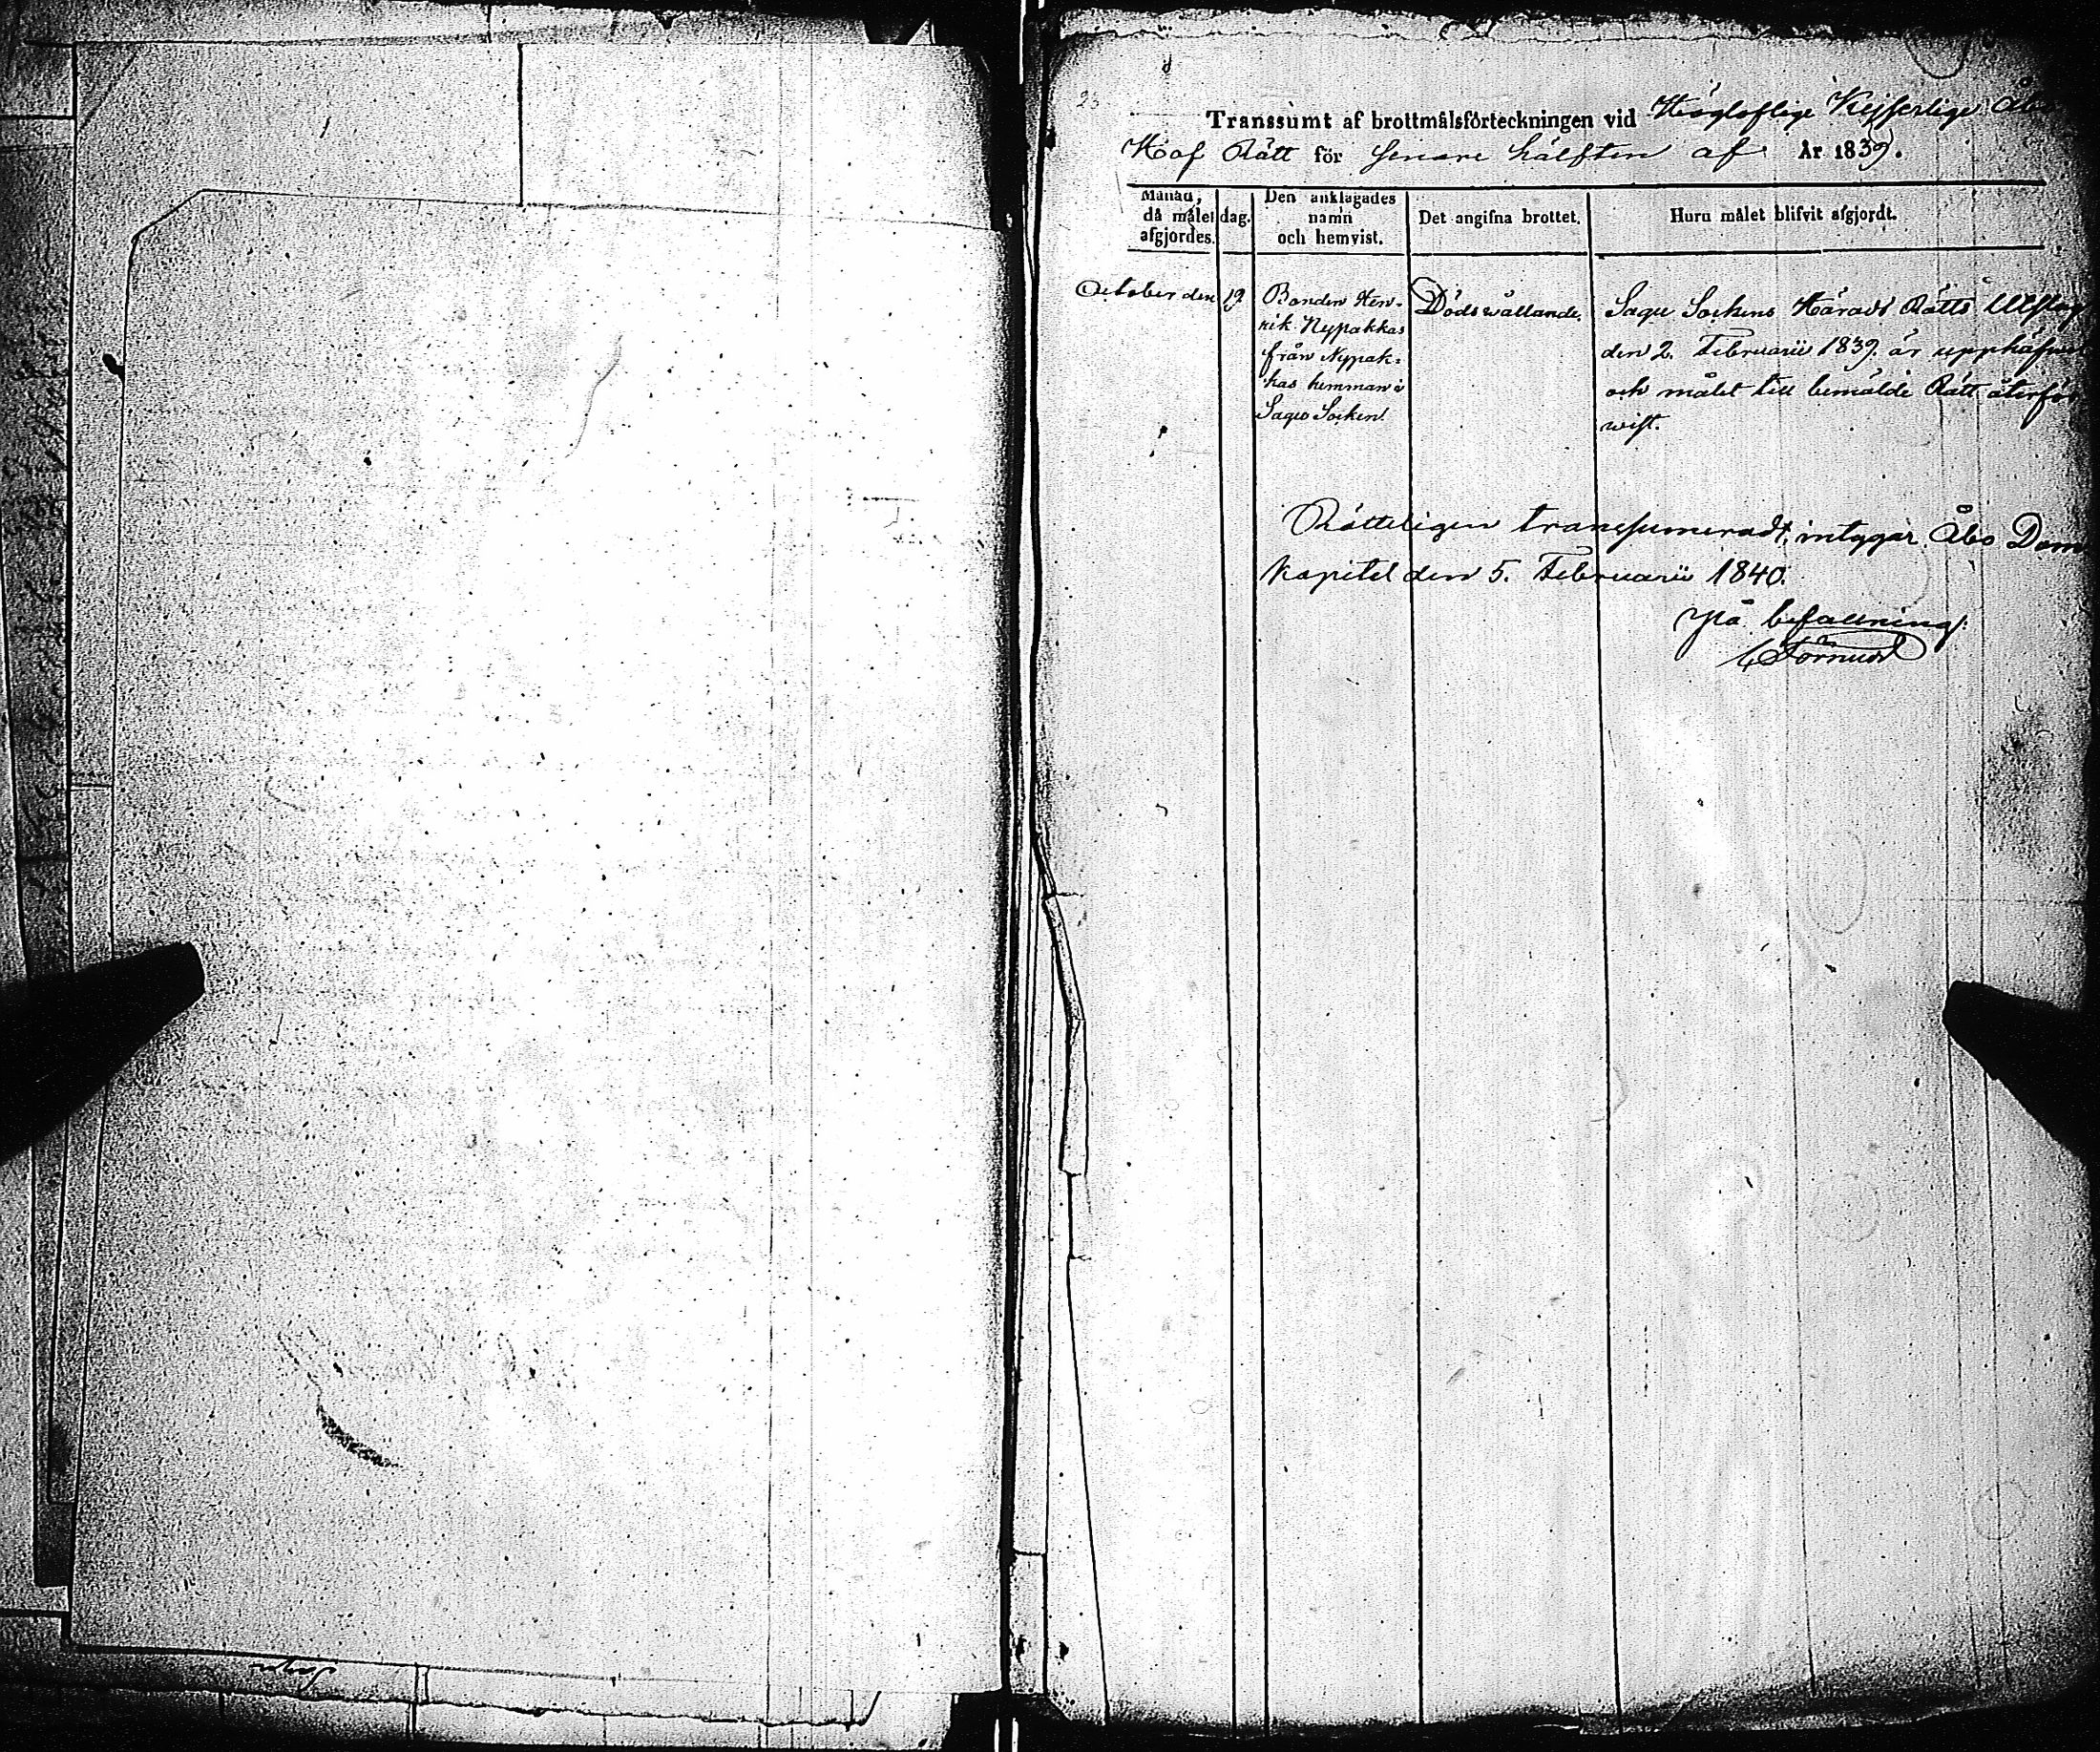 23
Transsumt af brottmålsförteckningen vid Högloflige Kejserlige Åbo
Hof Rätt för senare hälften af År 1839.
Månad, då målet afgjordes.
dag.
Den anklagades namn och hemvist.
Det angifna brottet.
Huru målet blifvit afgjordt.
October den
19
Bonden Hen-
rik Nypakkas
från Nypak-
kas hemman i
Sagu Socken.
Dödswållande.
Sagu Sockens Härads Rätts Utslag
den 2. Februarii 1839. är upphäfwet
och målet till bemälde Rätt återför
wist.
Rätteligen transsumeradt, intygar. Åbo Dom
kapitel den 5. Februarii 1840.
På befallning:
Sagu